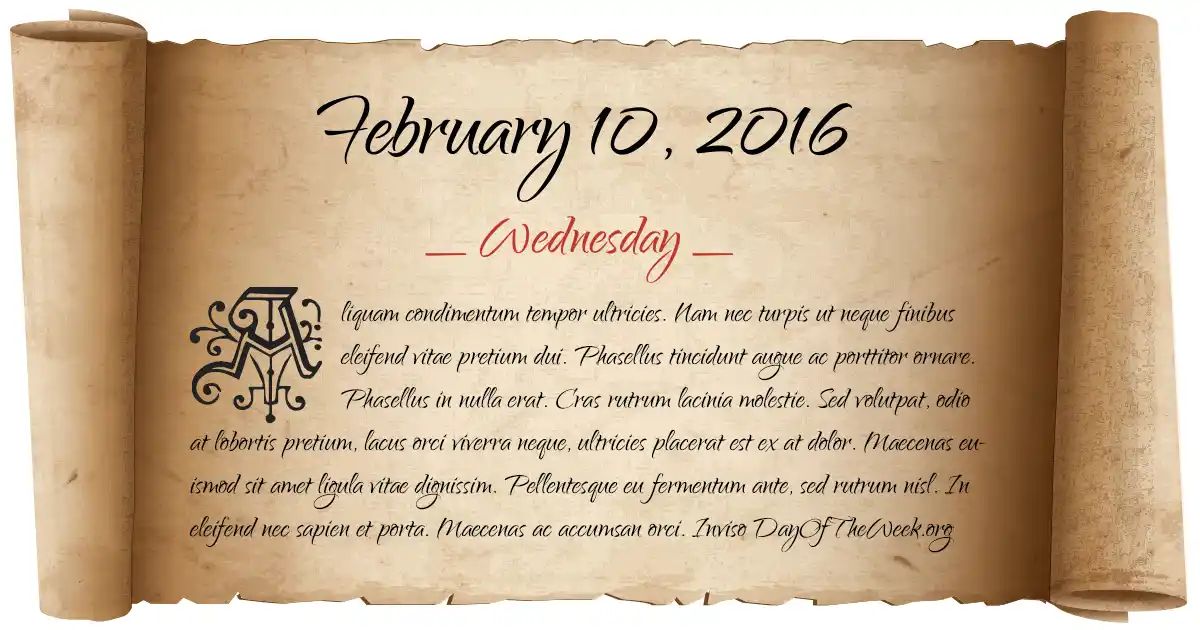 February 10, 2016
— Wednesday —
Aliquam condimentum tempor ultricies. Nam nec turpis ut neque finibus
eleifend vitae pretium dui. Phasellus tincidunt augue ac porttitor ornare.
Phasellus in nulla erat. Cras rutrum lacinia molestie. Sed volutpat, odio
at lobortis pretium, lacus orci viverra neque, ultricies placerat est ex at dolor. Maecenas eu-
ismod sit amet ligula vitae dignissim. Pellentesque eu fermentum ante, sed rutrum nisl. In
eleifend nec sapien et porta. Maecenas ac accumsan orci. Inviso DayOfTheWeek.org